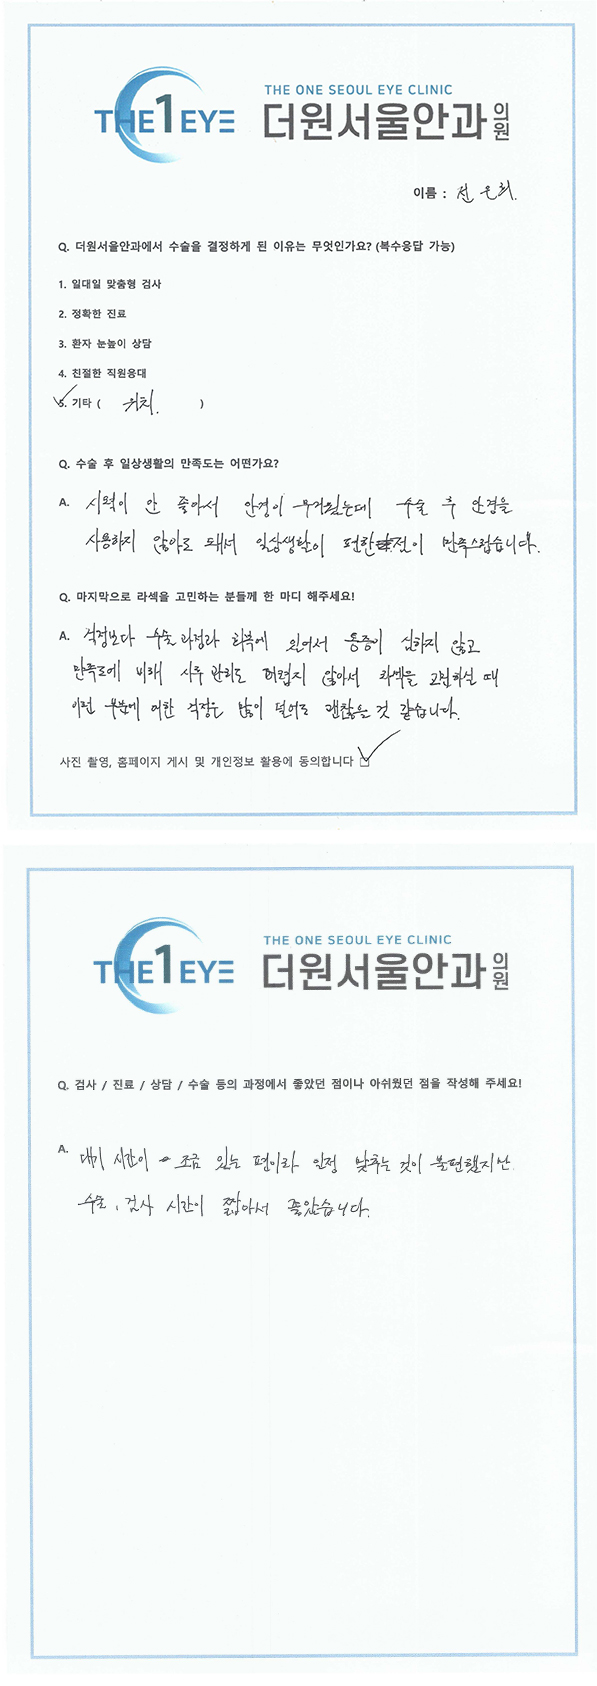 THE1EYE
THE ONE SEOUL EYE CLINIC
더원서울안과의원
이름 : 전은희.
Q. 더원서울안과에서 수술을 결정하게 된 이유는 무엇인가요? (복수응답 가능)
1. 일대일 맞춤형 검사
2. 정확한 진료
3. 환자 눈높이 상담
4. 친절한 직원응대
5. 기타 ( 위치. )
Q. 수술 후 일상생활의 만족도는 어떤가요?
A. 시력이 안 좋아서 안경이 무거웠는데 수술 후 안경을
사용하지 않아도 돼서 일상생활이 편한 점이 만족스럽습니다.
Q. 마지막으로 라섹을 고민하는 분들께 한 마디 해주세요!
A. 걱정보다 수술 과정과 회복에 있어서 통증이 심하지 않고
만족도에 비해 사후 관리도 어렵지 않아서 라섹을 고민하실 때
이런 부분에 대한 걱정은 많이 덜어도 괜찮을 것 같습니다.
사진 촬영, 홈페이지 게시 및 개인정보 활용에 동의합니다
THE1EYE
THE ONE SEOUL EYE CLINIC
더원서울안과의원
Q. 검사 / 진료 / 상담 / 수술 등의 과정에서 좋았던 점이나 아쉬웠던 점을 작성해 주세요!
A. 대기 시간이 조금 있는 편이라 일정 맞추는 것이 불편했지만
수술, 검사 시간이 짧아서 좋았습니다.